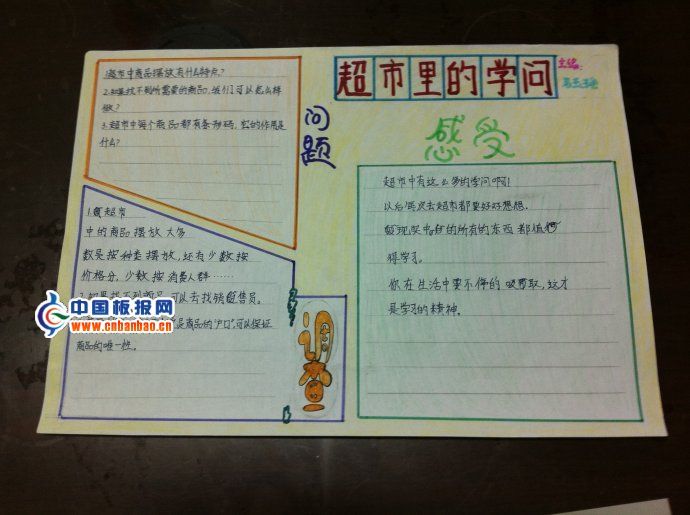 超市里的学问
主编:
问题
1.超市中商品摆放有什么特点?
2.如果找不到所需要的商品,我们可以怎么样
做?
3.超市中每个商品都有条形码,它的作用是
什么?
1.
超市
中的商品摆放大多
数是按种类摆放,还有少数按
价格分,少数按消费人群……
2.如果找不到商品,可以去找销售员。
是商品的“户口”,可以保证
商品的唯一性。
感受
超市中有这么多的学问啊!
以后每次去超市都要好好想想,
发现
的所有的东西都值得
得学习。
你在生活中要不停的吸取,这才
是学习的精神。
中国板报网
www.cnbanbao.cn